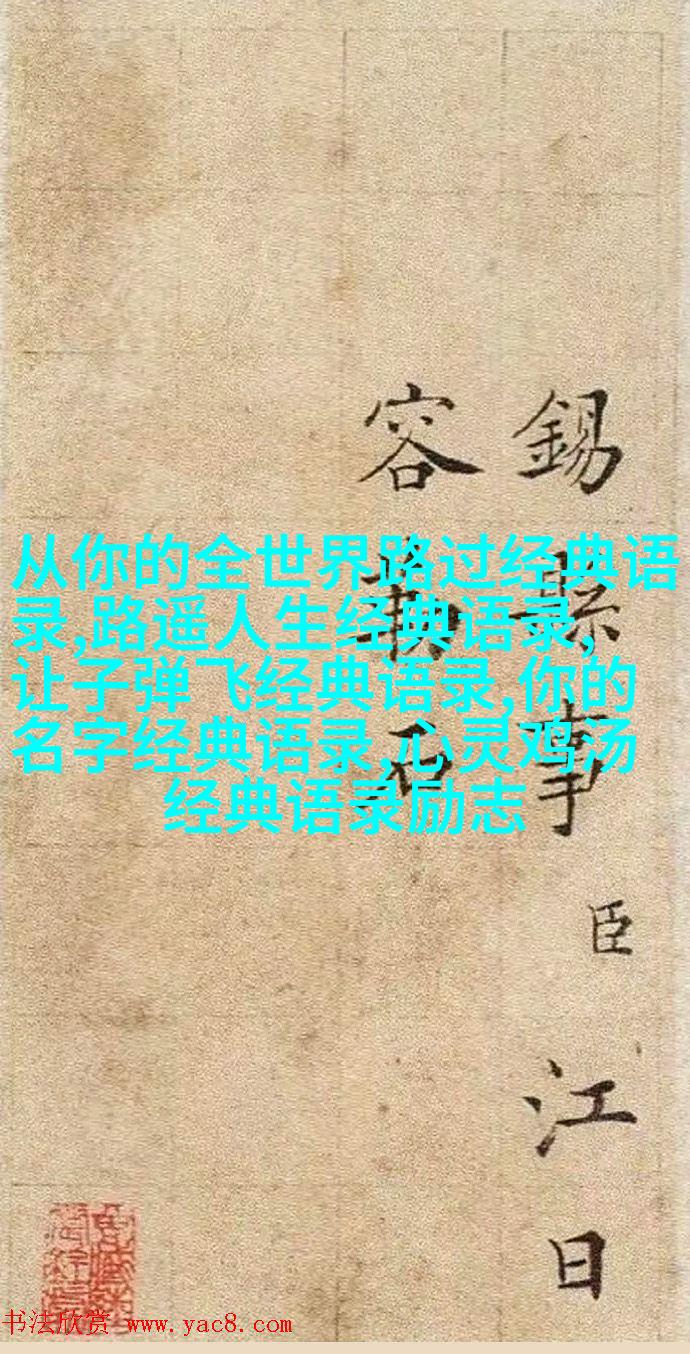 錫縣事臣江日
容
从你的全世界路过经典语
录,路遥人生经典语录,
让子弹飞经典语录,你的
名字经典语录,心灵鸡汤
经典语录励志
书法欣赏 www.yac8.com